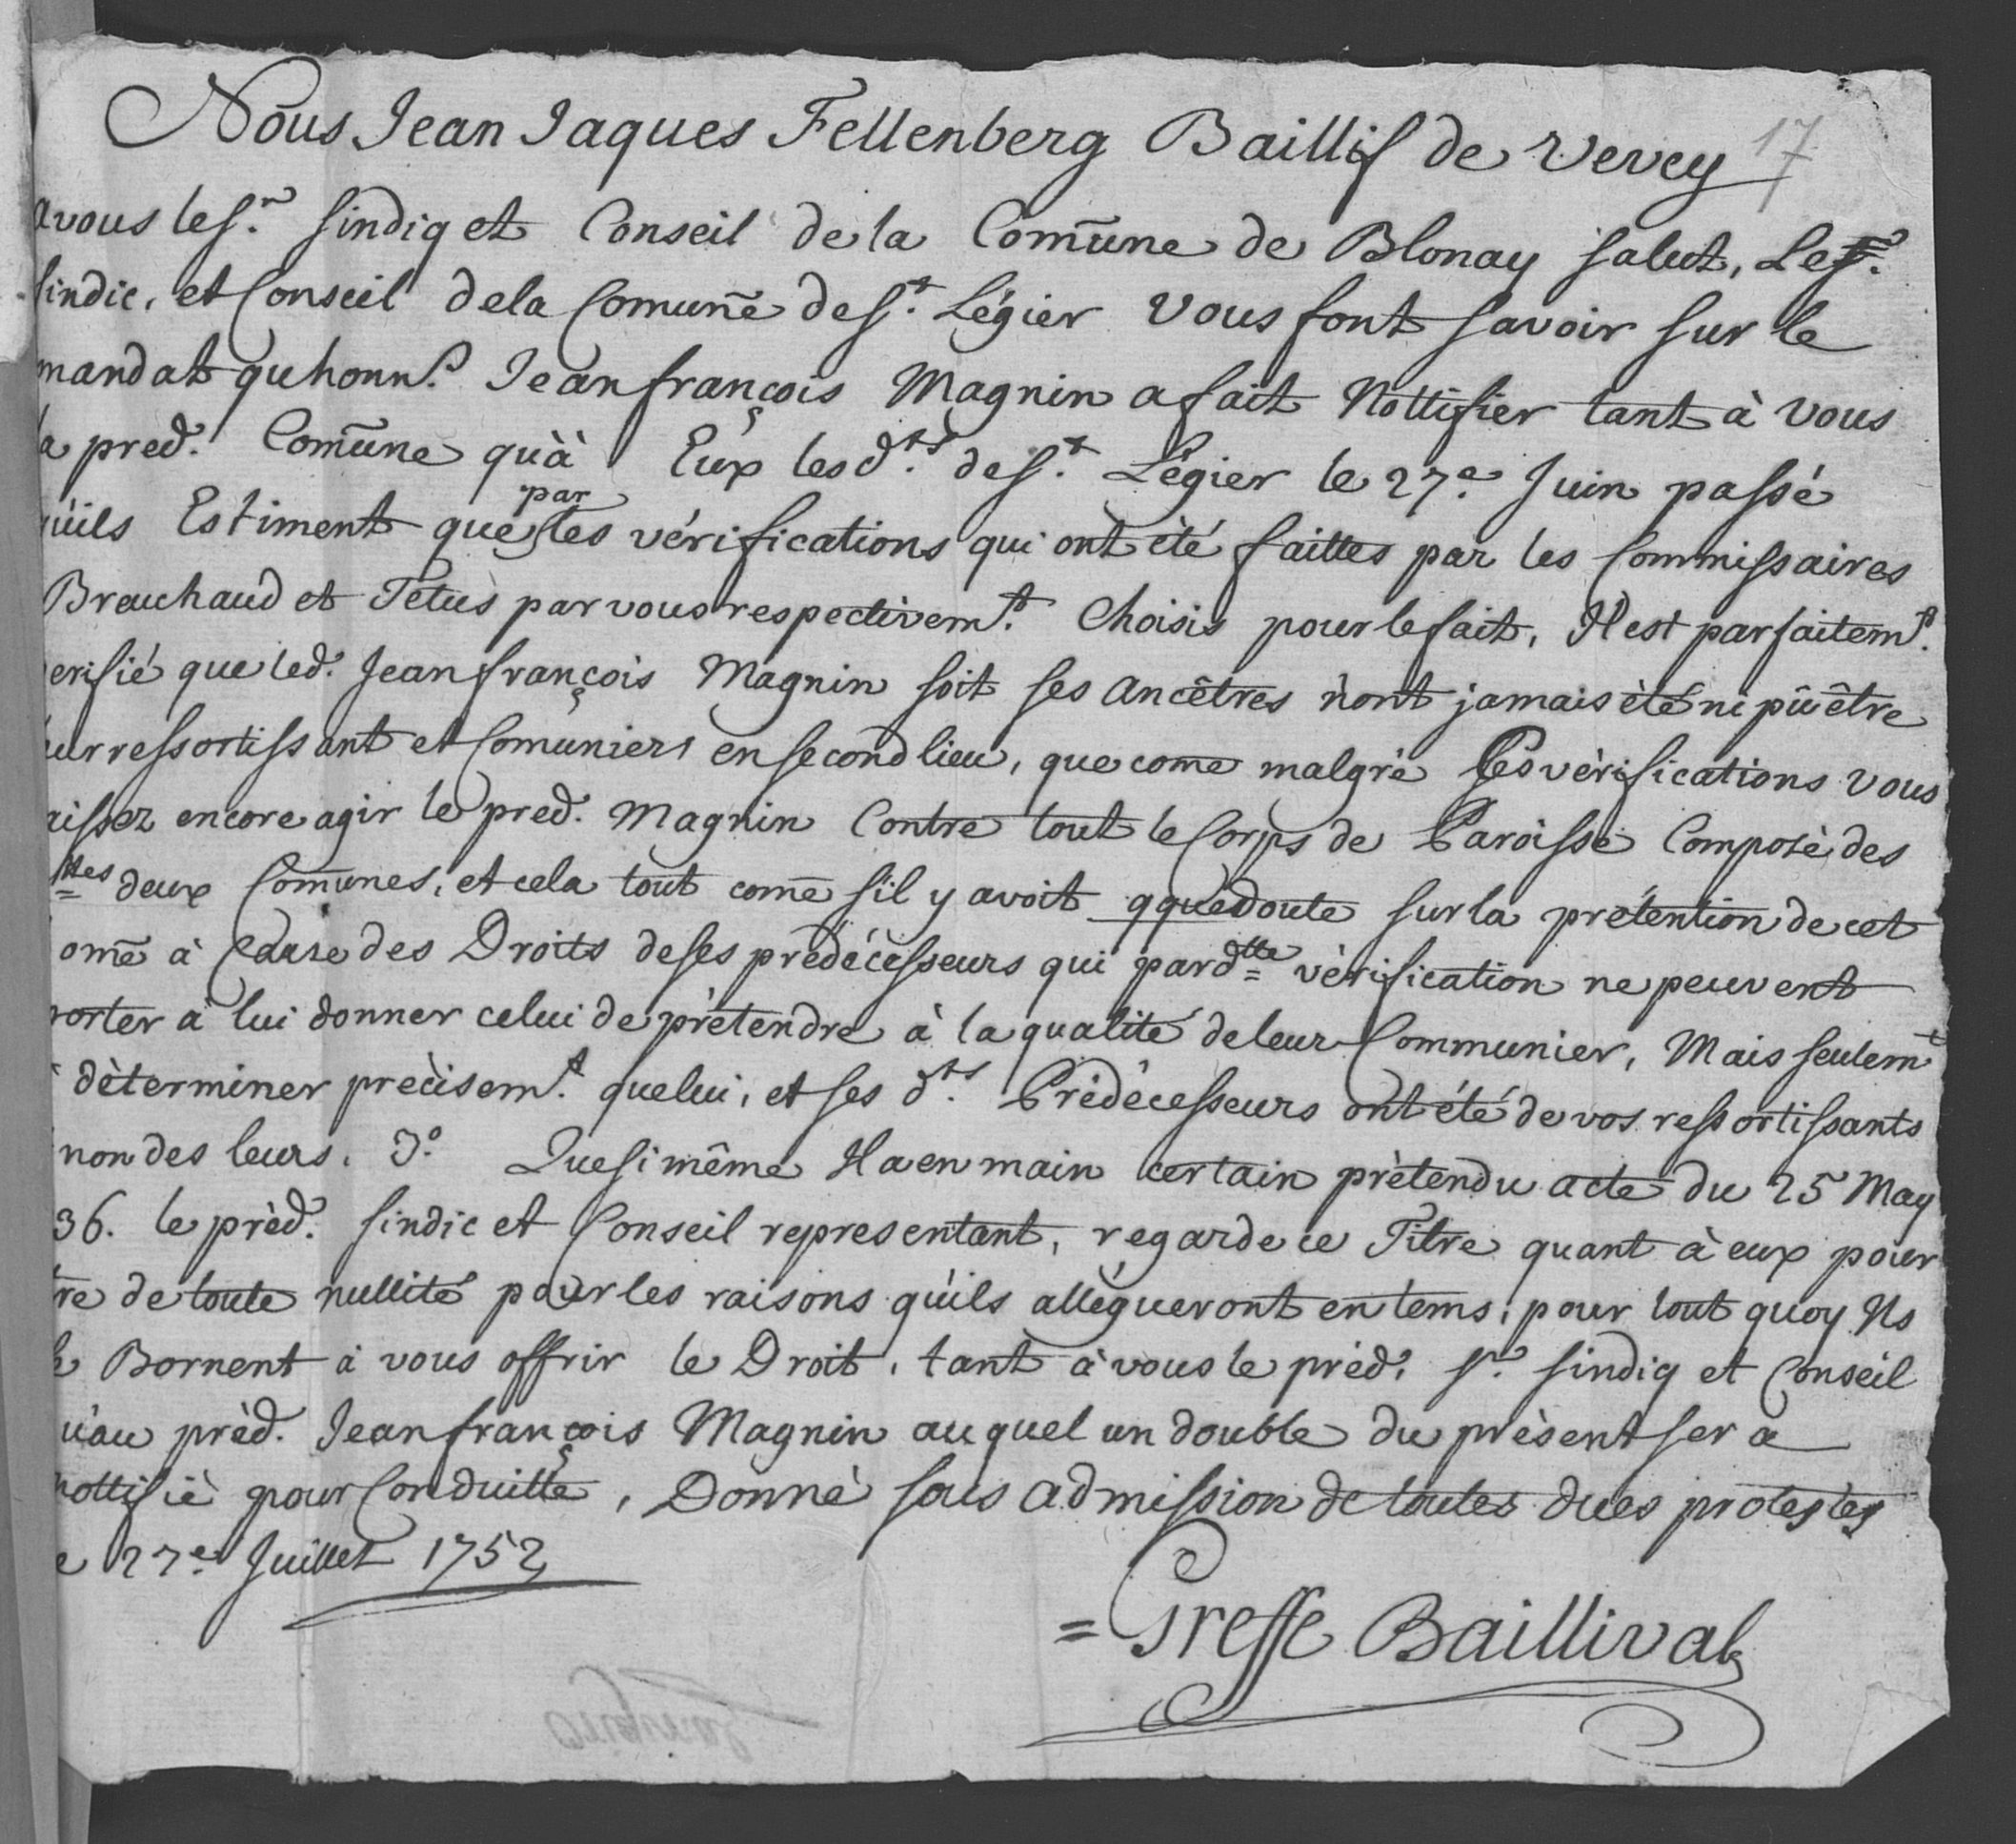 Nous Jean Jaques Fellenberg Baillif de Vevey 17
avous les.r sindiq et Conseil de la Comūne de Blonay salut, Les.r
sindic, et Conseil dela Comuñe de s.t Légier vous font savoir sur le
mandat qu honn.e Jean françois Magnin a fait Nottifier tant à vous
la pred.e Comūne qu'à Eux les d.ts de s.t Légier le 27.e Juin passé
qu'ils Estiment que par les vérifications qui ont été faittes par les Commissaires
Brauchaud et Tetus par vous respectivem.t Choisis pour le fait, Il est parfaitem.t
verifié que led.t Jean françois Magnin soit ses ancêtres n'ont jamais èté ni pû être
leur ressortissant et Comuniers en second lieu, que come malgrè Ces vèrifications vous
laissez encore agir le pred.t Magnin Contre tout le Corps de Paroisse Composè des
dittes deux Comūnes, et cela tout comē s'il y avoit qque doute sur la prétention de cet
homē à Cause des Droits de ses prédécésseurs qui par d.tte vèrification ne peuvent
porter à lui donner celui de prètendre à la qualité de leur Communier, Mais seulem.t
à dèterminer prècisem.t que lui, et ses d.ts Prédécesseurs ont été de vos ressortissants
non des leurs. 3.o Que si même Il a en main certain prètendu acte du 25 May
36. le prèd.t sindic et Conseil representant, regarde ce Titre quant à eux pour
être de toute nullité pour les raisons qu'ils allègueront en tems, pour tout quoy Ils
se Bornent à vous offrir le Droit, tant à vous le prèd.t s.r sindiq et Conseil
qu'au prèd.t Jean françois Magnin au quel un double du prèsent sera
nottifiè pour Conduitte, Donnè sous admission de toutes dues protestes
e 27.e Juillet 1752
= Greffe Baillival